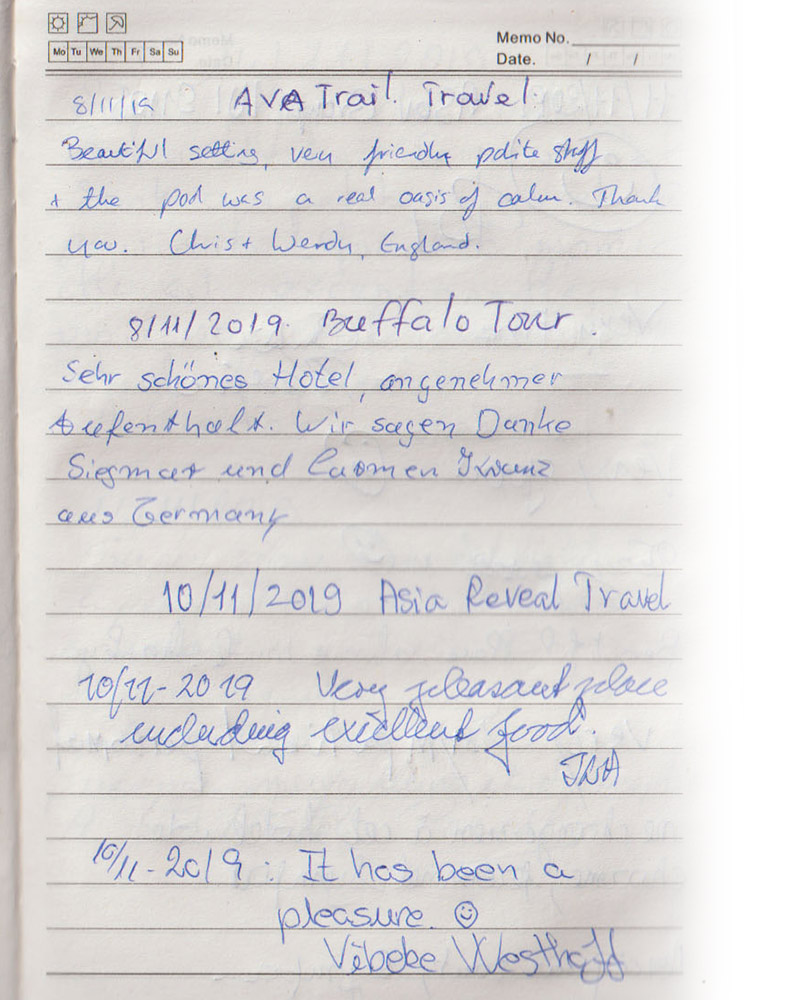 Mo Tu We Th Fr Sa Su
Memo No.
Date. / /
8/11/19 AVA Trail. Travel.
Beautiful setting, very friendly polite staff
+ the pod was a real oasis of calm. Thank
you. Chris + Wendy, England.
8/11/2019. Buffalo Tour.
Sehr schönes Hotel, angenehmer
Aufenthalt. Wir sagen Danke
Siegmar und Carmen
aus Germany
10/11/2019 Asia Reveal Travel
10/11-2019 Very pleasant place
including excellent food.
10/11-2019: It has been a
pleasure ☺
Vibeke Westhoff